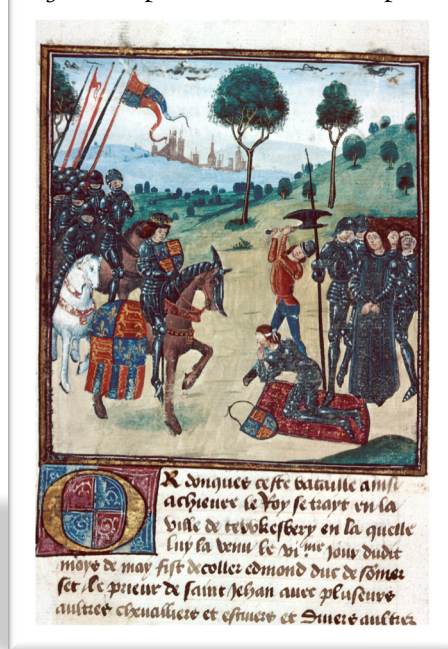 OR donques ceste bataille ainsi
achievee le Roy se trayt en la
ville de tewkesbery en la quelle
luy la venu le vi me jour dudit
moys de may fist decoller edmond duc de somer
set le prieur de saint Jehan avec pluseurs
aultres chevalliers et escuiers et divers aultres